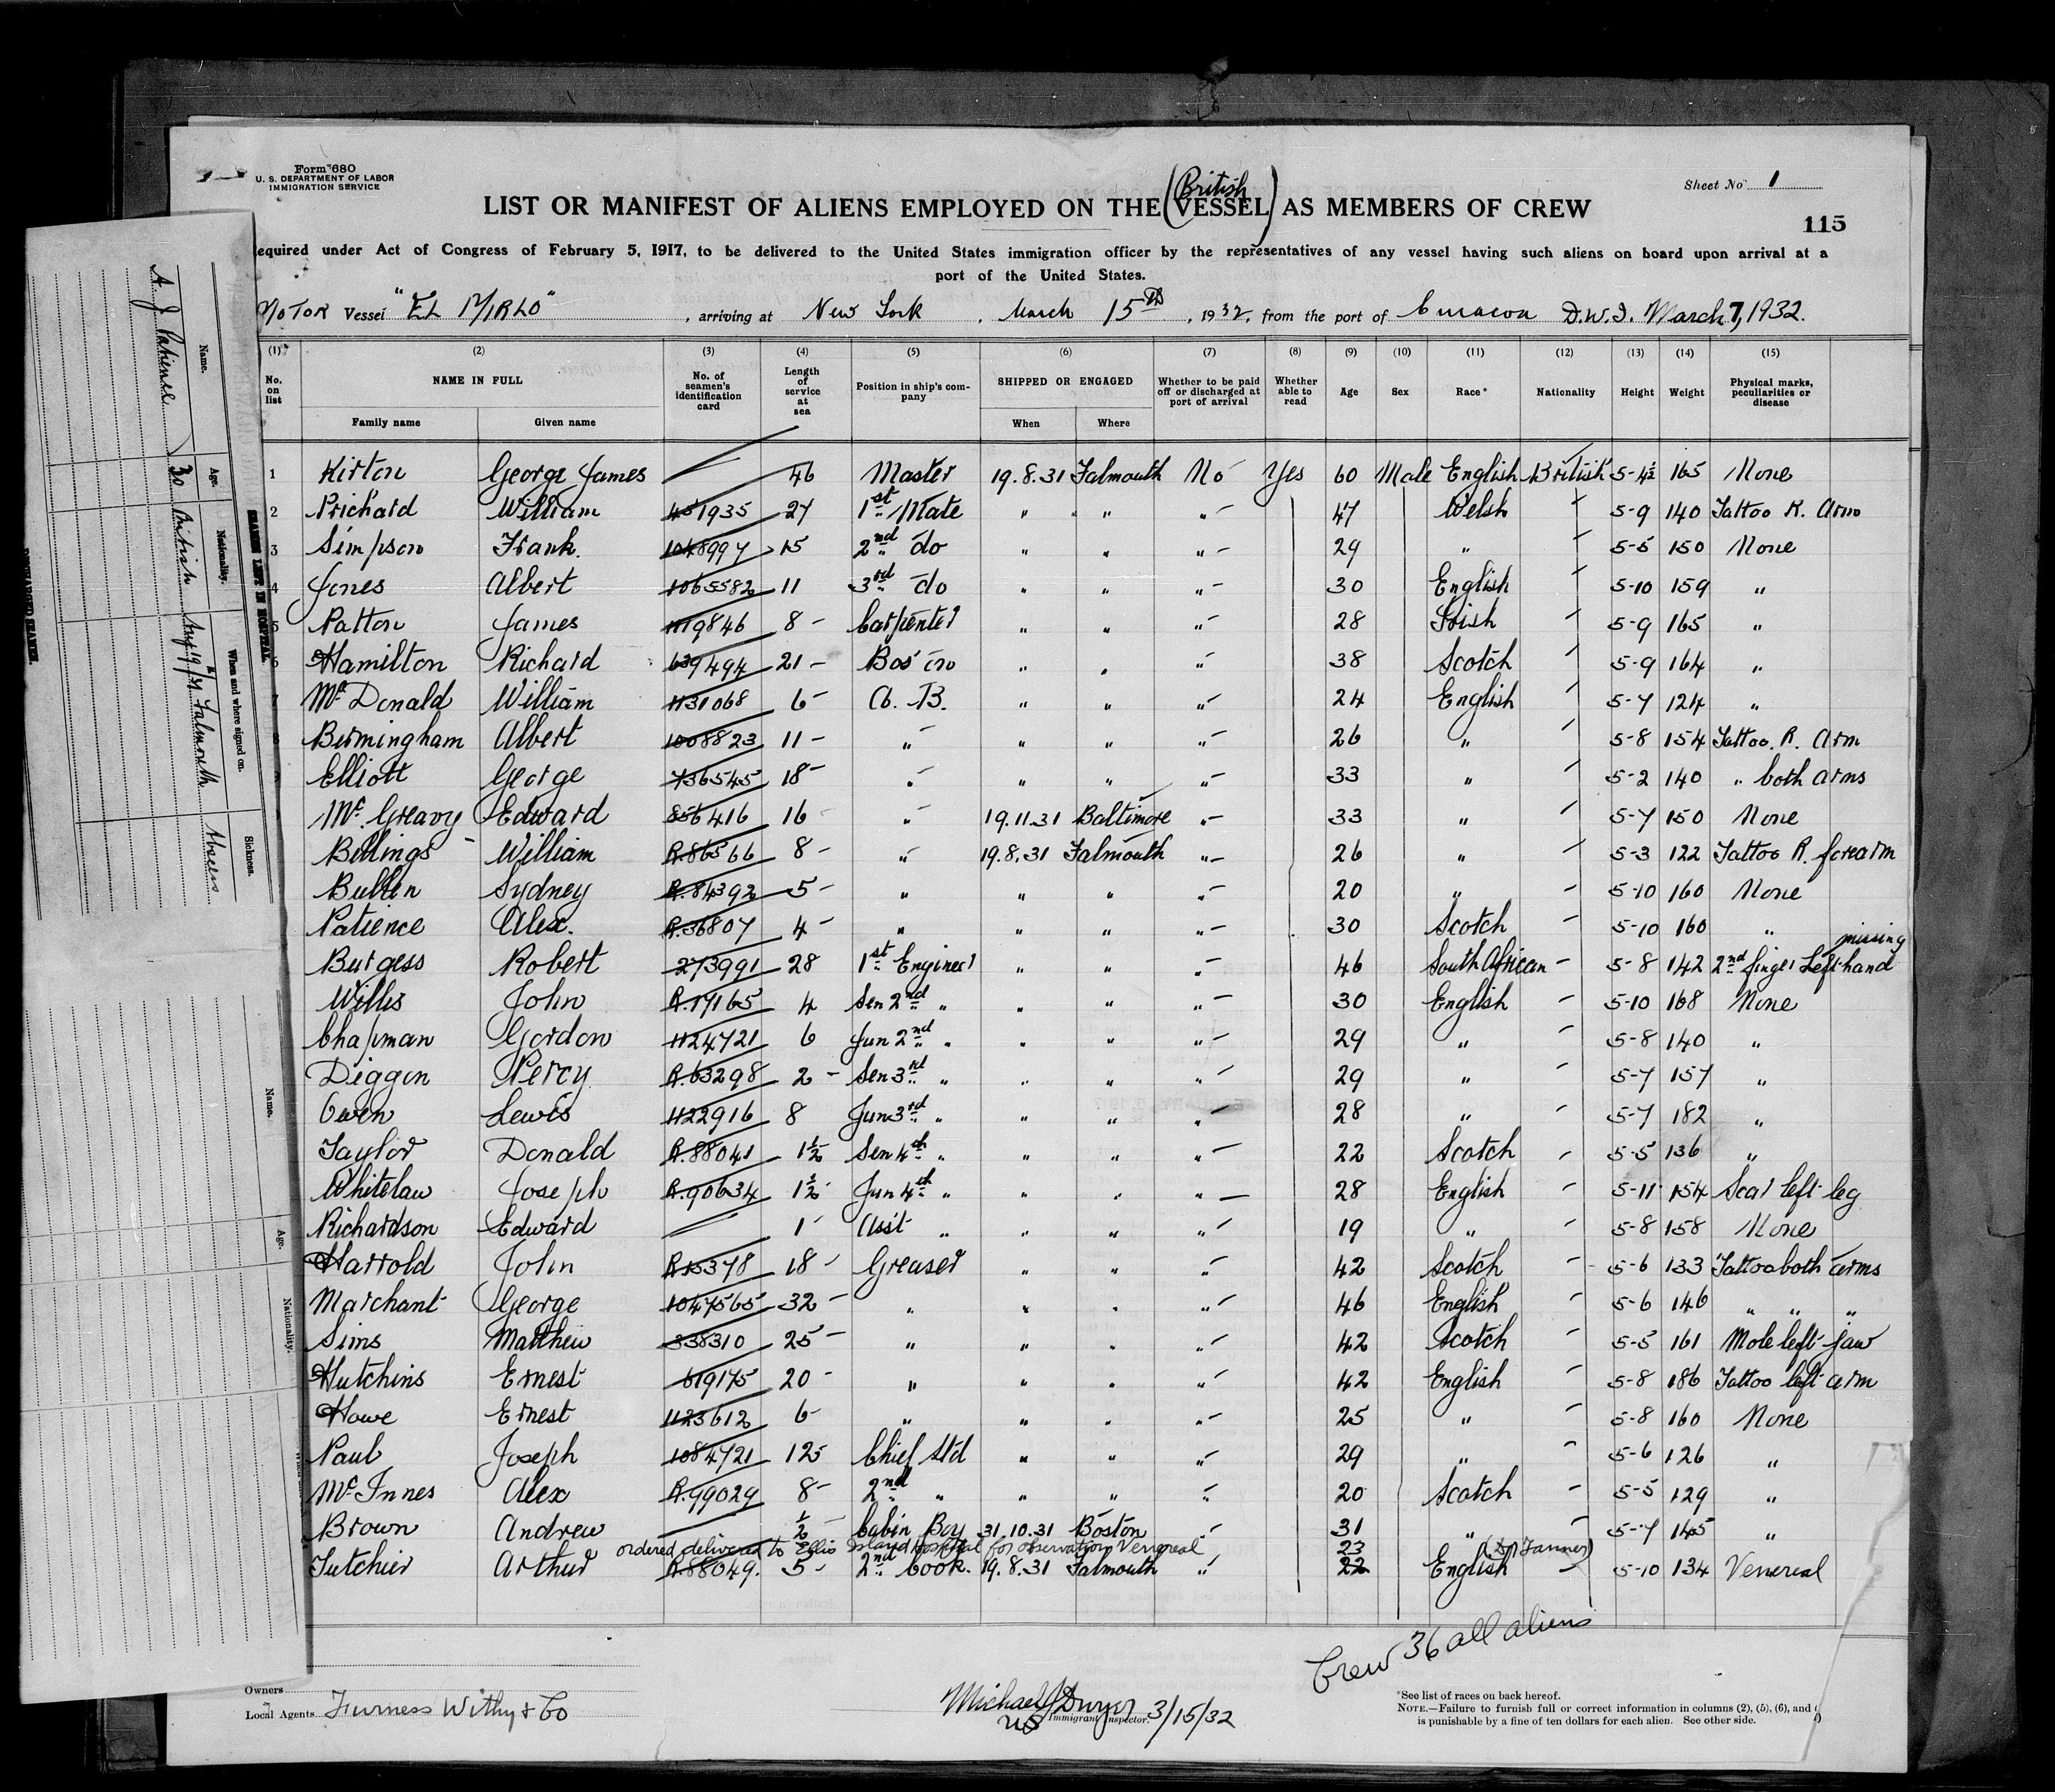 Form 680
U. S. DEPARTMENT OF LABOR
IMMIGRATION SERVICE
Sheet No 1
(British)
LIST OR MANIFEST OF ALIENS EMPLOYED ON THE VESSEL AS MEMBERS OF CREW
115
equired under Act of Congress of February 5, 1917, to be delivered to the United States immigration officer by the representatives of any vessel having such aliens on board upon arrival at a
port of the United States.
MOTOR Vessel "EL MIRLO", arriving at New York, March 15th, 1932, from the port of Curacoa D.W.I. March 7, 1932.
(1) (2) (3) (4) (5) (6) (7) (8) (9) (10) (11) (12) (13) (14) (15)
No. on list NAME IN FULL Family name Given name No. of seamen's identification card Length of service at sea Position in ship's company SHIPPED OR ENGAGED When Where Whether to be paid off or discharged at port of arrival Whether able to read Age Sex Race* Nationality Height Weight Physical marks, peculiarities or disease
1 Kirton George James — 46 Master 19.8.31 Falmouth No Yes 60 Male English British 5-4½ 165 None
2 Prichard William 451935 27 1st Mate " " " 47 Welsh 5-9 140 Tattoo R. Arm
3 Simpson Frank. 1048997 15 2nd do " " " 29 " 5-5 150 None
4 Jones Albert 1065582 11 3rd do " " " 30 English 5-10 159 "
5 Patton James 1119846 8 Carpenter " " " 28 Irish 5-9 165 "
6 Hamilton Richard 639494 21 Bos'on " " " 38 Scotch 5-9 164 "
7 McDonald William 1131068 6 A. B. " " " 24 English 5-7 124 "
Birmingham Albert 1008823 11 " " " " 26 " 5-8 154 Tattoo. R. Arm
Elliott George 736545 18 " " " " 33 " 5-2 140 " both arms
McGreavy Edward 856416 16 " 19.11.31 Baltimore " 33 " 5-7 150 None
Billings William R.86566 8 " 19.8.31 Falmouth " 26 " 5-3 122 Tattoo R. forearm
Bullen Sydney R.84392 5 " " " " 20 " 5-10 160 None
Patience Alex. R.36807 4 " " " " 30 Scotch 5-10 160 "
Burgess Robert 273991 28 1st Engineer " " " 46 South African 5-8 142 2nd finger Left hand missing
Willis John R.19165 4 Sen 2nd " " " " 30 English 5-10 168 None
Chapman Gordon 1124721 6 Jun 2nd " " " " 29 " 5-8 140 "
Diggin Percy R.63298 2 Sen 3rd " " " " 29 " 5-7 157 "
Owen Lewis 1122916 8 Jun 3rd " " " " 28 " 5-7 182 "
Taylor Donald R.88041 1½ Sen 4th " " " " 22 Scotch 5-5 136 "
Whitelaw Joseph R.90634 1½ Jun 4th " " " " 28 English 5-11 154 Scar left leg
Richardson Edward — 1 Ass't " " " " 19 " 5-8 158 None
Harrold John R.15378 18 Greaser " " " 42 Scotch 5-6 133 Tattoo both arms
Marchant George 1047565 32 " " " " 46 English 5-6 146 " " "
Sims Matthew 338310 25 " " " " 42 Scotch 5-5 161 Mole left jaw
Hutchins Ernest 619175 20 " " " " 42 English 5-8 186 Tattoo left arm
Howe Ernest 1123612 6 " " " " 25 " 5-8 160 None
Paul Joseph 1084721 125 Chief Std " " " 29 " 5-6 126 "
McInnes Alex R.99029 8 2nd " " " " 20 Scotch 5-5 129 "
Brown Andrew — ½ Cabin Boy 31.10.31 Boston " 31 " 5-7 145 "
ordered delivered to Ellis Island hospital for observation Venereal 23
Tutchier Arthur R.88049. 5 2nd Cook. 19.8.31 Falmouth " 22 English 5-10 134 Venereal
Crew 36 all aliens
Owners
Local Agents Furness Withy & Co
Michael J Dwyer
US Immigrant Inspector. 3/15/32
*See list of races on back hereof.
NOTE.—Failure to furnish full or correct information in columns (2), (5), (6), and
is punishable by a fine of ten dollars for each alien. See other side.
SEAMEN LEFT IN HOSPITAL
Name. Age. Nationality. When and where signed on. Sickness.
A. J. Patience 30 British Aug 19/31 Falmouth
DISCHARGED SEAMEN.
Name. Age. Nationality.